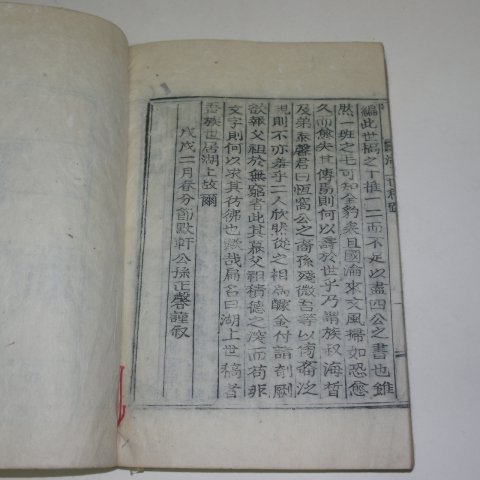 編此世稿之丁推一二而不足以盡四公之書也雖
然一班之乇可知全豹矣且國淪來文風掃如恐愈
久而愈失其傳易則何以壽於世乎乃謂族叔海晢
及弟泰馨君曰恒窩公之裔孫殘微吾等以傍裔泛
視則不亦慕乎二人欣然從之相爲醵金付諸剞劂
欲報父祖於無窮者此其慕父祖積德之深而苟非
文字則何以求其彷彿也歟哉扁名曰湖上世稿者
吾族世居湖上故爾
戊戌二月春分節默軒公孫正馨謹叙